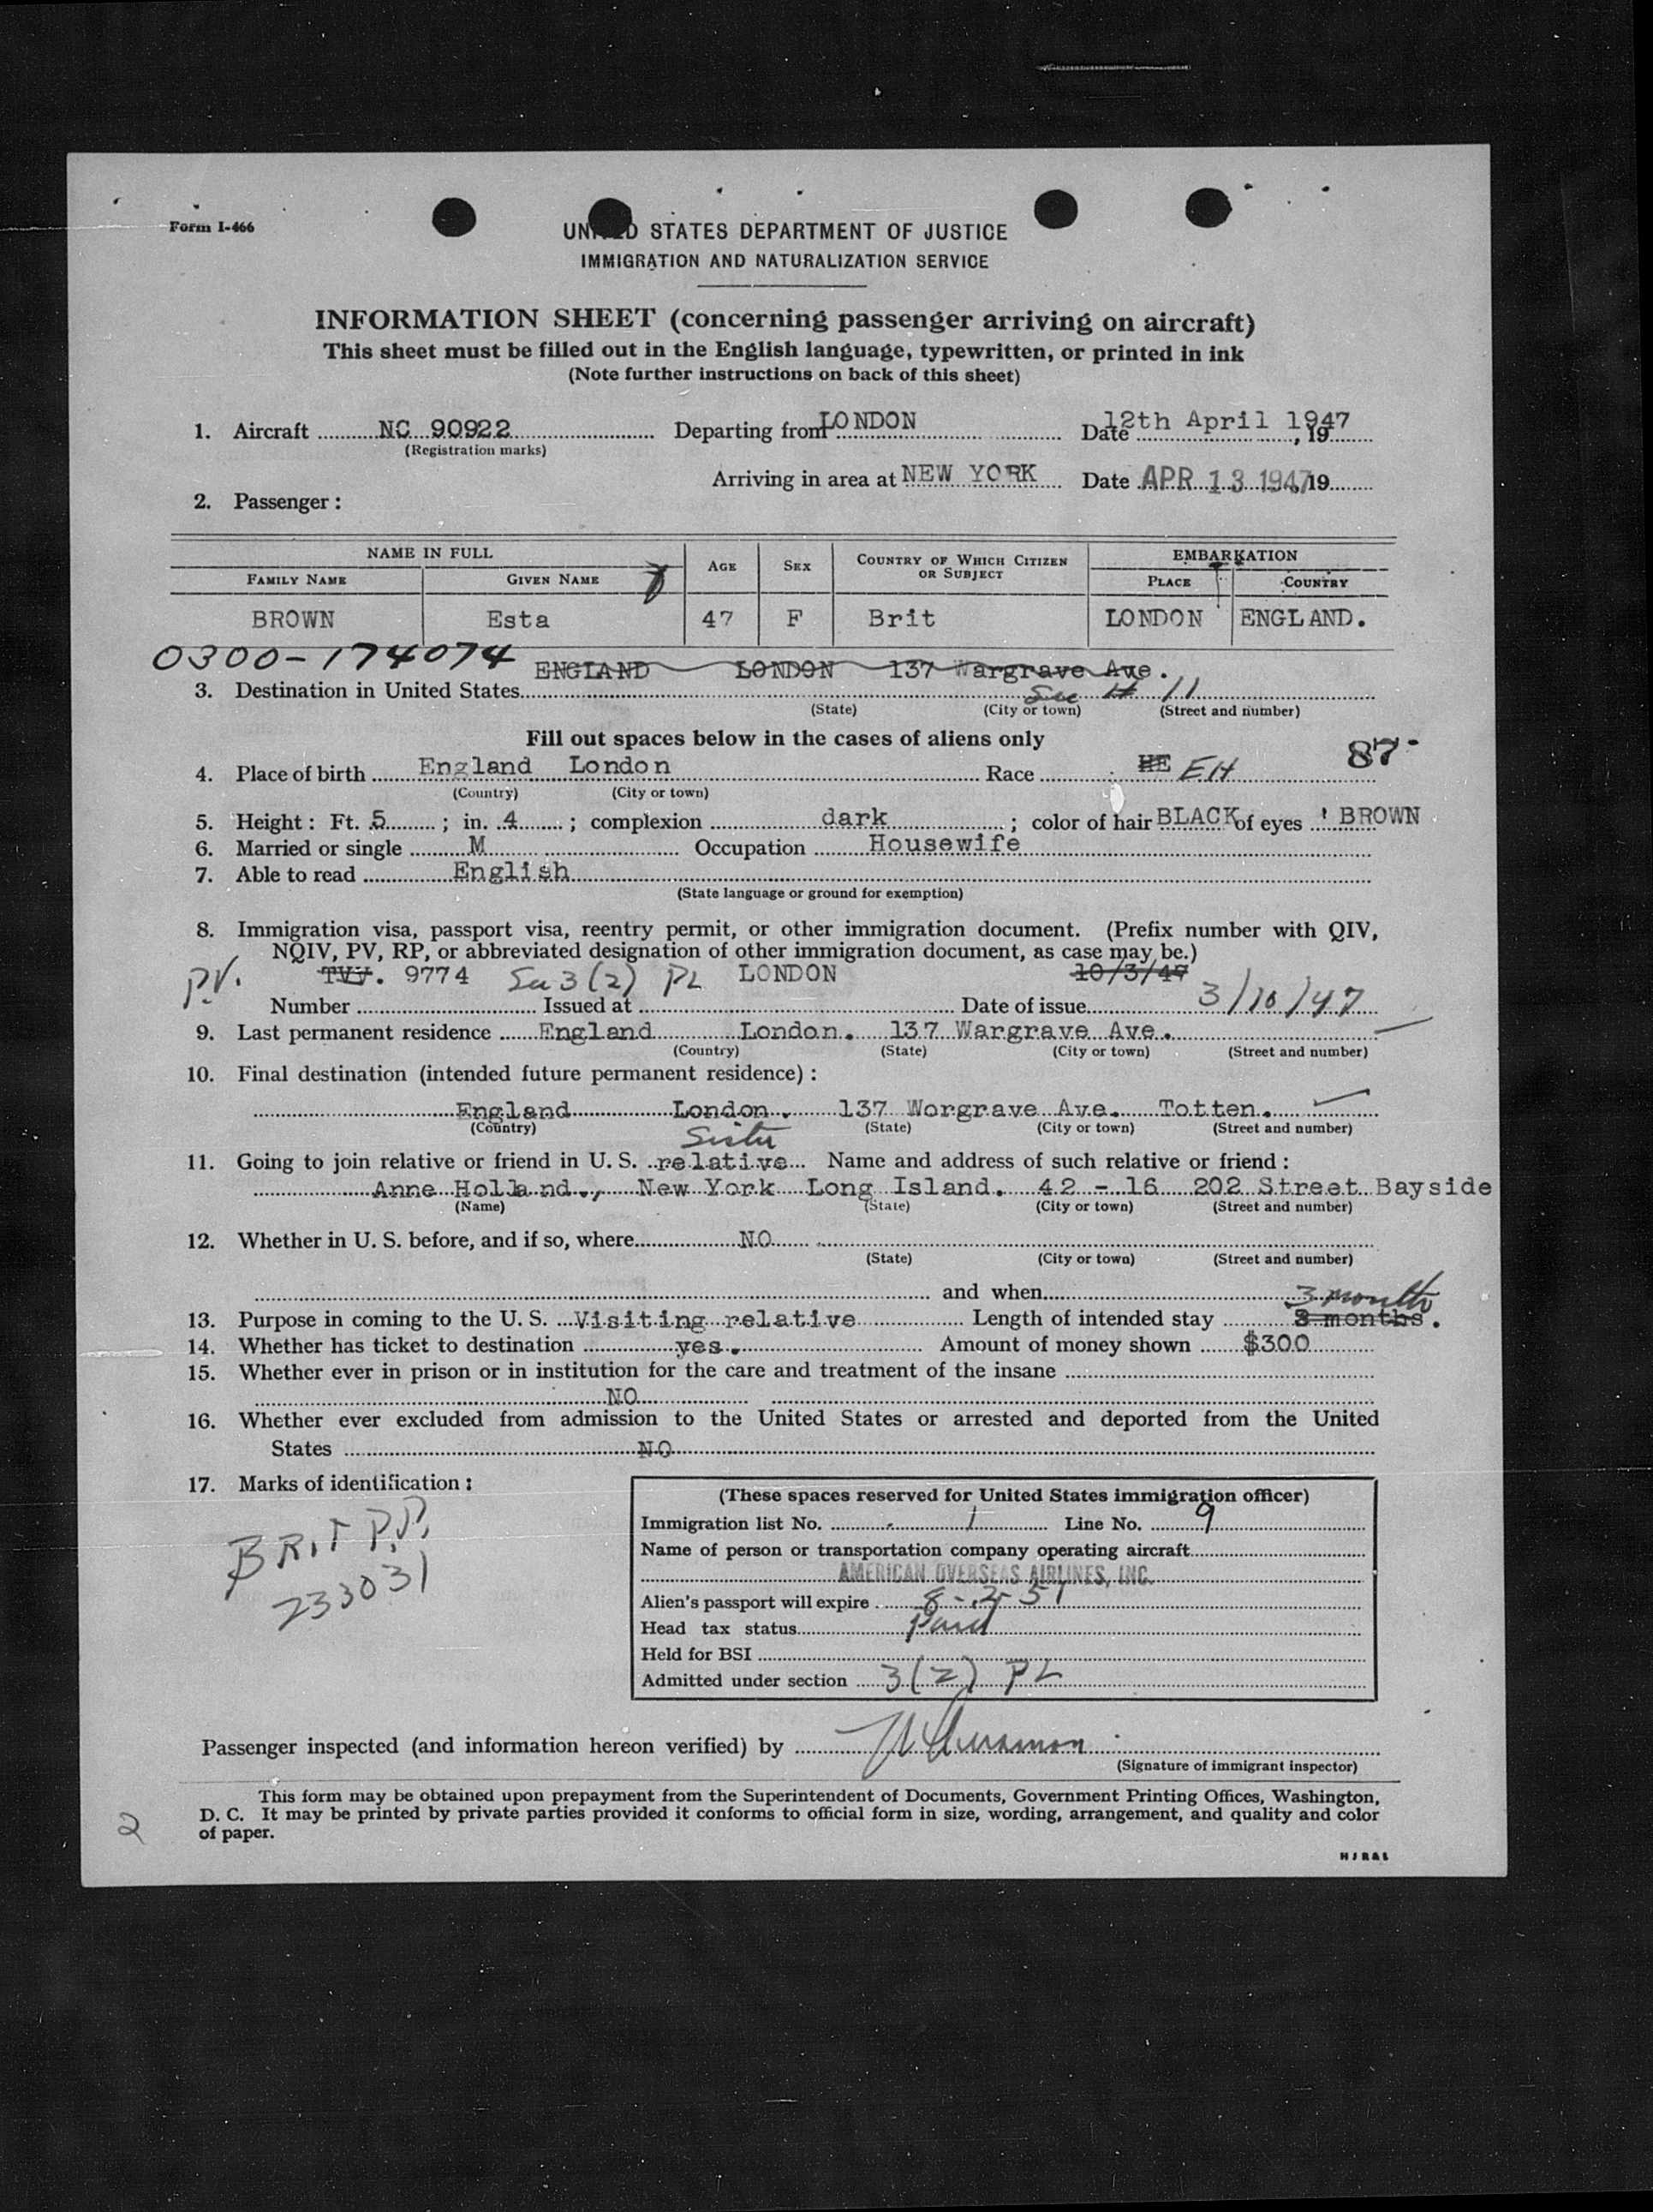 Form I-466
UNITED STATES DEPARTMENT OF JUSTICE
IMMIGRATION AND NATURALIZATION SERVICE
INFORMATION SHEET (concerning passenger arriving on aircraft)
This sheet must be filled out in the English language, typewritten, or printed in ink
(Note further instructions on back of this sheet)
1. Aircraft NC 90922 Departing from LONDON Date 12th April 1947, 19
(Registration marks)
Arriving in area at NEW YORK Date APR 13 1947, 19
2. Passenger:
NAME IN FULL AGE SEX COUNTRY OF WHICH CITIZEN OR SUBJECT EMBARKATION
FAMILY NAME GIVEN NAME PLACE COUNTRY
BROWN Esta 47 F Brit LONDON ENGLAND.
0300-174074 ENGLAND LONDON 137 Wargrave Ave.
3. Destination in United States See # 11
(State) (City or town) (Street and number)
Fill out spaces below in the cases of aliens only
87
4. Place of birth England London Race HE EH
(Country) (City or town)
5. Height: Ft. 5; in. 4; complexion dark; color of hair BLACK of eyes BROWN
6. Married or single M Occupation Housewife
7. Able to read English
(State language or ground for exemption)
8. Immigration visa, passport visa, reentry permit, or other immigration document. (Prefix number with QIV,
NQIV, PV, RP, or abbreviated designation of other immigration document, as case may be.)
P.V. TVV. 9774 Sec 3(2) PL LONDON 10/3/47
Number Issued at Date of issue 3/10/47
9. Last permanent residence England London. 137 Wargrave Ave.
(Country) (State) (City or town) (Street and number)
10. Final destination (intended future permanent residence):
England London. 137 Worgrave Ave. Totten.
(Country) (State) (City or town) (Street and number)
Sister
11. Going to join relative or friend in U. S. relative Name and address of such relative or friend:
Anne Holland., New York Long Island. 42 - 16 202 Street Bayside
(Name) (State) (City or town) (Street and number)
12. Whether in U. S. before, and if so, where NO
(State) (City or town) (Street and number)
and when
3 months
13. Purpose in coming to the U. S. Visiting relative Length of intended stay 3 months.
14. Whether has ticket to destination yes. Amount of money shown $300
15. Whether ever in prison or in institution for the care and treatment of the insane
NO
16. Whether ever excluded from admission to the United States or arrested and deported from the United
States NO
17. Marks of identification:
BRIT P.P.
233031
(These spaces reserved for United States immigration officer)
Immigration list No. 1 Line No. 9
Name of person or transportation company operating aircraft
AMERICAN OVERSEAS AIRLINES, INC.
Alien's passport will expire 8-2-51
Head tax status Paid
Held for BSI
Admitted under section 3(2) PL
Passenger inspected (and information hereon verified) by
(Signature of immigrant inspector)
This form may be obtained upon prepayment from the Superintendent of Documents, Government Printing Offices, Washington,
D. C. It may be printed by private parties provided it conforms to official form in size, wording, arrangement, and quality and color
of paper.
2